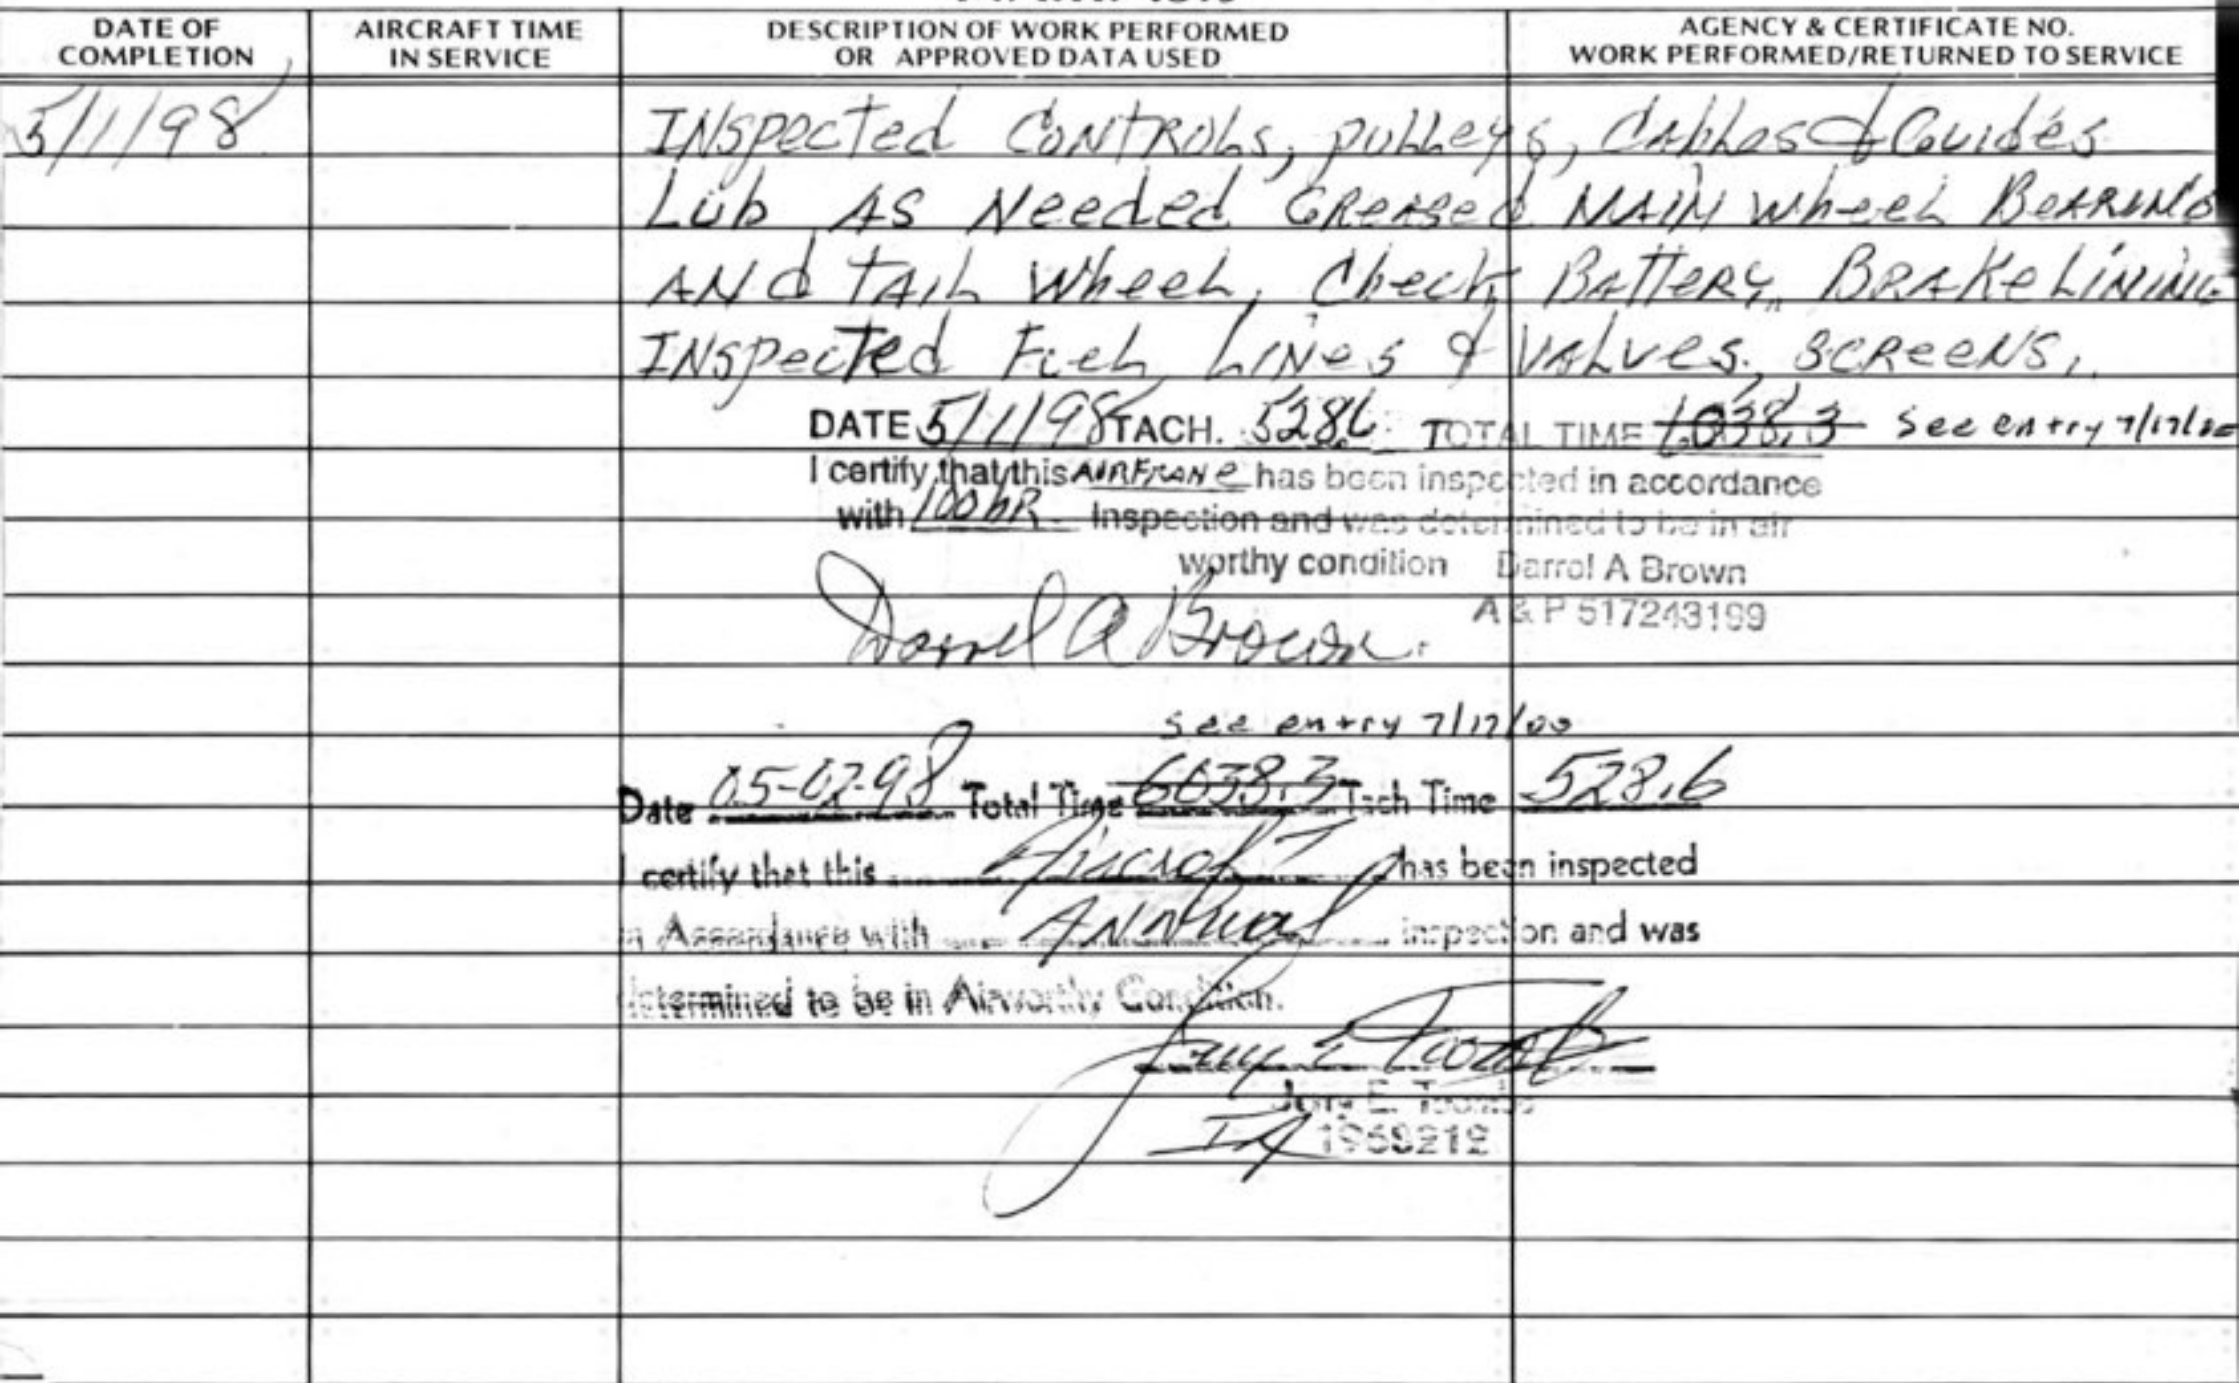 DATE OF COMPLETION
AIRCRAFT TIME IN SERVICE
DESCRIPTION OF WORK PERFORMED OR APPROVED DATA USED
AGENCY & CERTIFICATE NO. WORK PERFORMED/RETURNED TO SERVICE
5/1/98 INSpected CONTROLS, pulleys, CABles & Guides
Lub AS Needed GREASed MAIN Wheel BEARING
ANd TAIL Wheel, Check BATTERY, BRAKe LINING
INSpected Fuel LINes & VALves, SCREENS,
DATE 5/1/98 TACH. 528.6 TOTAL TIME 6038.3 See entry 7/17/00
I certify that this AIRFRAMe has been inspected in accordance
with 100 hR Inspection and was determined to be in air
worthy condition Darrol A Brown
A & P 517243199
Darrol A Brown
see entry 7/17/00
Date 05-02-98 Total Time 6038.3 Tach Time 528.6
I certify that this Aircraft has been inspected
in Accordance with ANNual inspection and was
determined to be in Airworthy Condition.
Jerry E. Toombs
IA